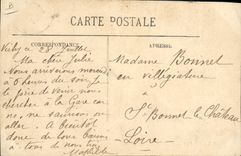 CARTE POSTALE
CORRESPONDANCE
ADRESSE
Vichy ce 28 Juillet
Ma chère Julie
Nous arrivons mercredi
à 6 heures du soir. Je
te prie de venir nous
chercher à la gare car
ne, ne saurions ou
aller. A bientôt
donc de bons baisers
à tous de nous
Mathilde
Madame Bonnel
en villégiature
St Bonnet le Château
Loire